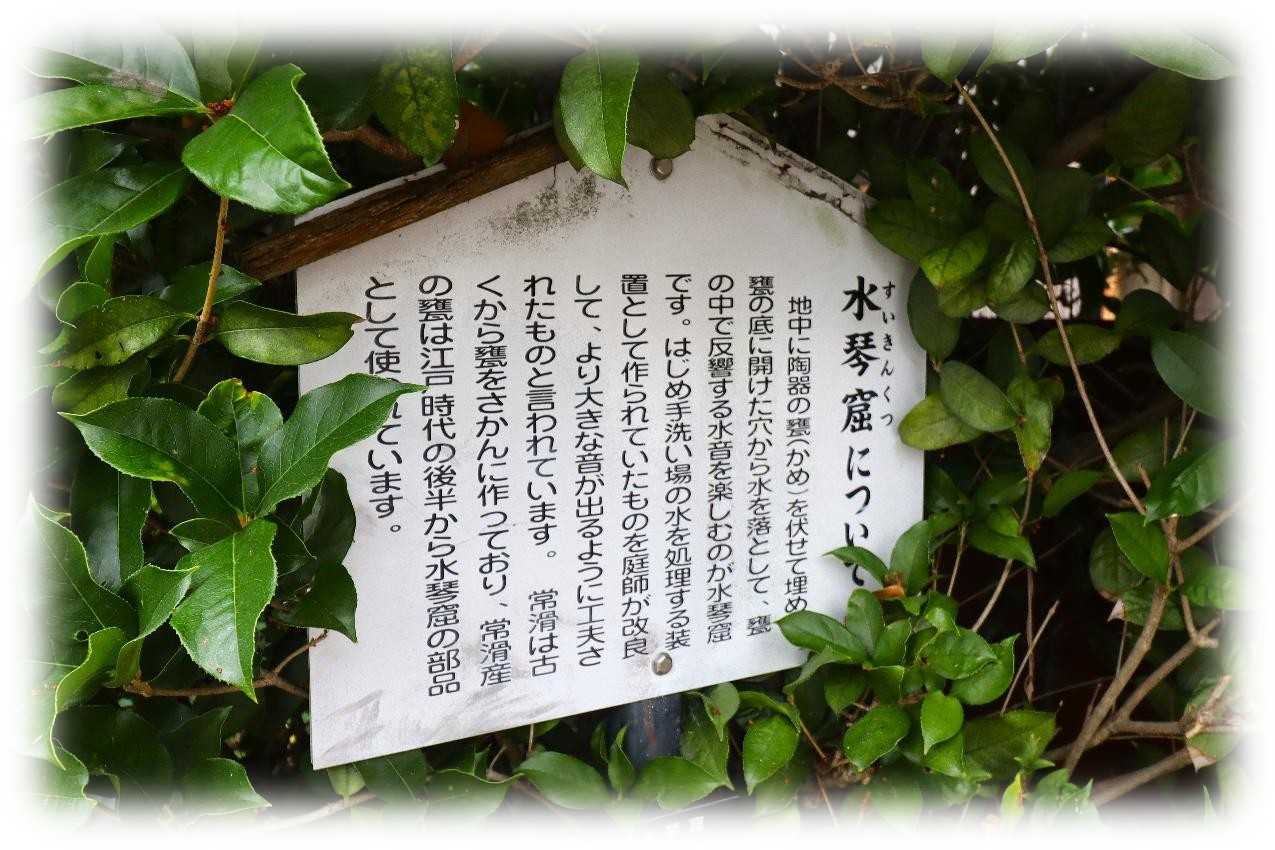 水琴窟について
すいきんくつ
地中に陶器の甕(かめ)を伏せて埋め
甕の底に開けた穴から水を落として、甕
の中で反響する水音を楽しむのが水琴窟
です。はじめ手洗い場の水を処理する装
置として作られていたものを庭師が改良
して、より大きな音が出るように工夫さ
れたものと言われています。　常滑は古
くから甕をさかんに作っており、常滑産
の甕は江戸時代の後半から水琴窟の部品
として使れています。